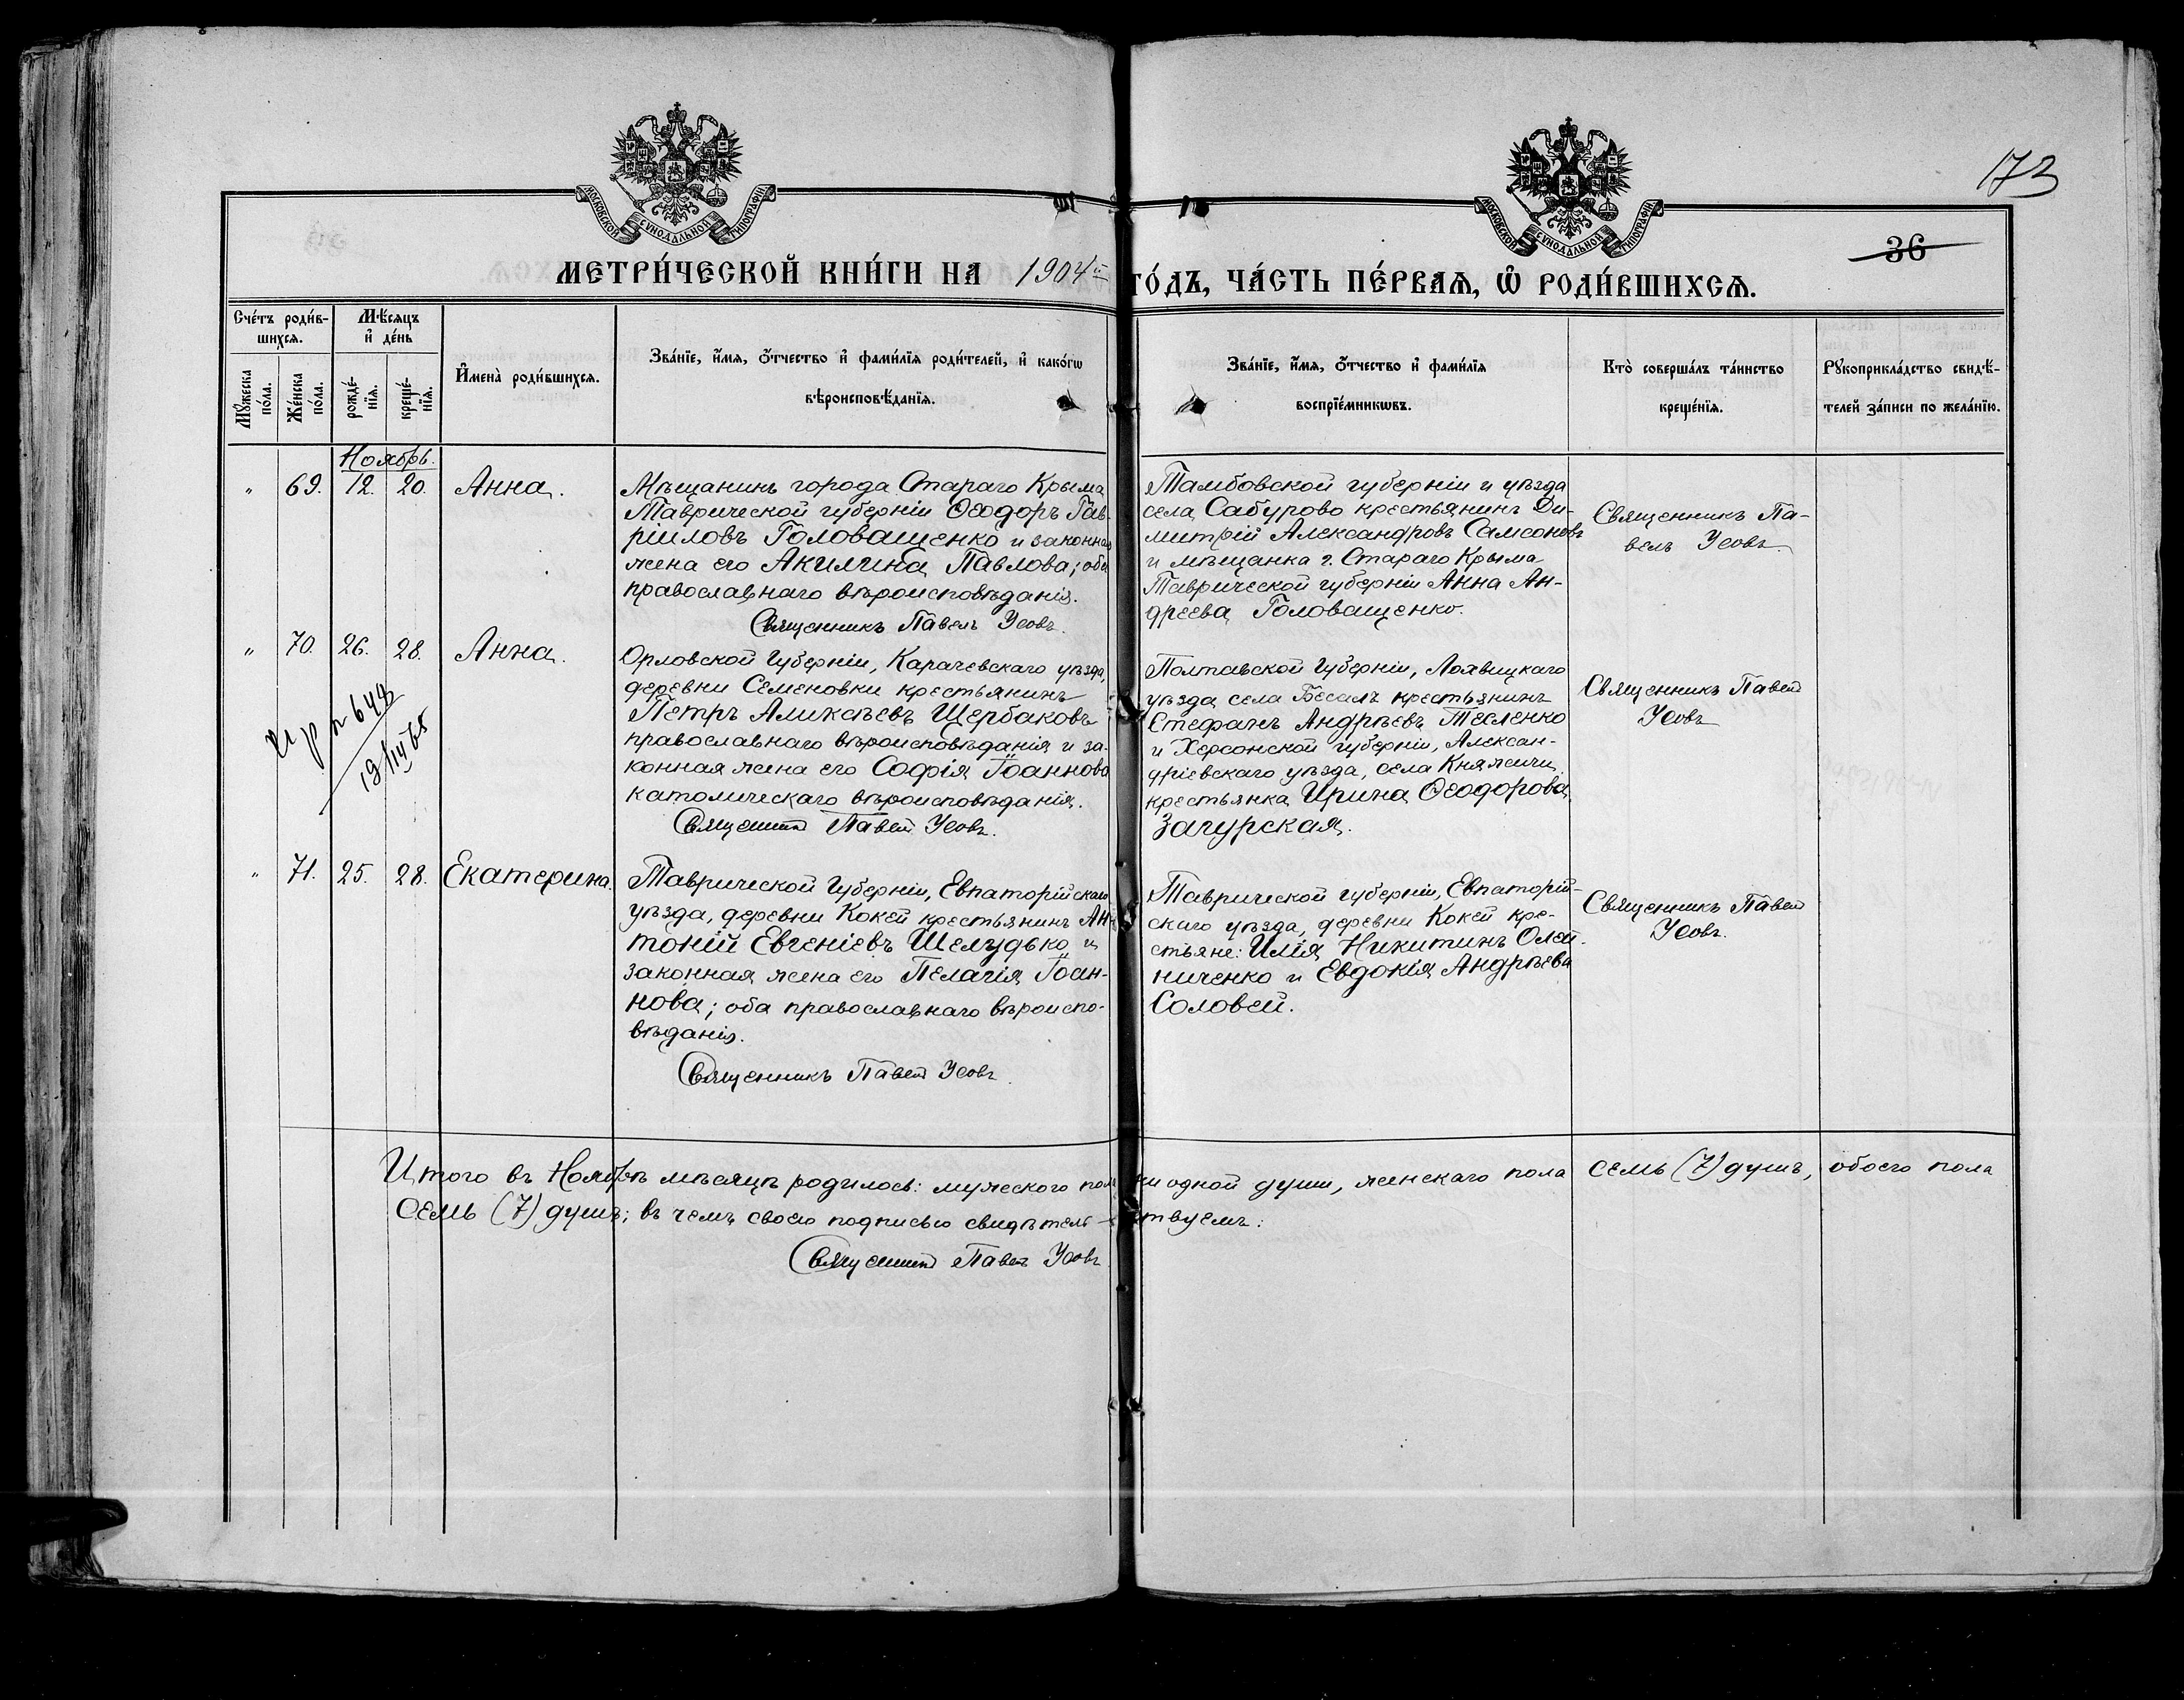 173
36
МОСКОВСКОЙ СѴНОДАЛЬНОЙ ТИПОГРАФІИ
МОСКОВСКОЙ СѴНОДАЛЬНОЙ ТИПОГРАФІИ
МЕТРИ́ЧЕСКОЙ КНИ́ГИ НА 1904й ГО́ДЪ, ЧА́СТЬ ПЕ́РВАѦ, Ѽ РОДИ́ВШИХСѦ.
Сче́тъ роди́в-
шихсѧ.
Мѣ́сѧцъ
и҆ де́нь
Мꙋ́жеска
по́ла.
Же́нска
по́ла.
рожде́-
нїѧ.
креще́-
нїѧ.
И҆мена̀ роди́вшихсѧ.
Зва́нїе, и҆́мѧ, ѻ҆́тчество и҆ фами́лїѧ роди́телей, и҆ како́гѡ
вѣроисповѣ́данїѧ.
Зва́нїе, и҆́мѧ, ѻ҆́тчество и҆ фами́лїѧ
воспрїе́мникѡвъ.
Кто̀ соверша́лъ та́инство
креще́нїѧ.
Рꙋкоприкла́дство свидѣ́-
телей за́писи по жела́нїю.
Ноябрь.
" 69. 12. 20. Анна.
Мѣщанинъ города Стараго Крыма
Таврической губерніи Ѳеодоръ Гав-
рііловъ Головащенко и законная
жена его Акилина Павлова; оба
православнаго вѣроисповѣданія.
Священникъ Павелъ Усовъ.
Тамбовской губерніи и уѣзда
села Сабурово крестьянинъ Ди-
митрій Александровъ Самсоновъ
и мѣщанка г. Стараго Крыма
Таврической губерніи Анна Ан-
дреева Головащенко.
Священникъ Па-
велъ Усовъ.
" 70. 26. 28. Анна.
Орловской Губерніи, Карачевскаго уѣзда,
деревни Семеновки крестьянинъ
Петръ Аликсѣевъ Щербаковъ
православнаго вѣроисповѣданія и за-
конная жена его Софія Іоаннова
католическаго вѣроисповѣданія.
Священникъ Павелъ Усовъ.
Полтавской Губерніи, Лохвицкаго
уѣзда села Бесалъ крестьянинъ
Стефанъ Андрѣевъ Тесленко
и Херсонской губерніи, Алексан-
дріевскаго уѣзда, села Княжичи
крестьянка Ирина Ѳеодорова
Загурская.
Священникъ Павелъ
Усовъ
648
" 71. 25. 28. Екатерина.
Таврической Губерніи, Евпаторійскаго
уѣзда, деревни Кокей крестьянинъ Ан-
тоній Евгеніевъ Шелудько и
законная жена его Пелагія Іоан-
нова; оба православнаго вѣроиспо-
вѣданія.
Священникъ Павелъ Усовъ.
Таврической губерніи, Евпаторій-
скаго уѣзда, деревни Кокей кре-
стьяне: Илія Никитинъ Олей-
ниченко и Евдокія Андрѣева
Соловей.
Священникъ Павелъ
Усовъ.
Итого въ Ноябрѣ мѣсяцѣ родилось: мужеского пола ни одной души, женскаго пола семь (7) душъ, обоего пола
семь (7) душъ; въ чемъ своею подписью свидѣтельствуемъ:
Священникъ Павелъ Усовъ